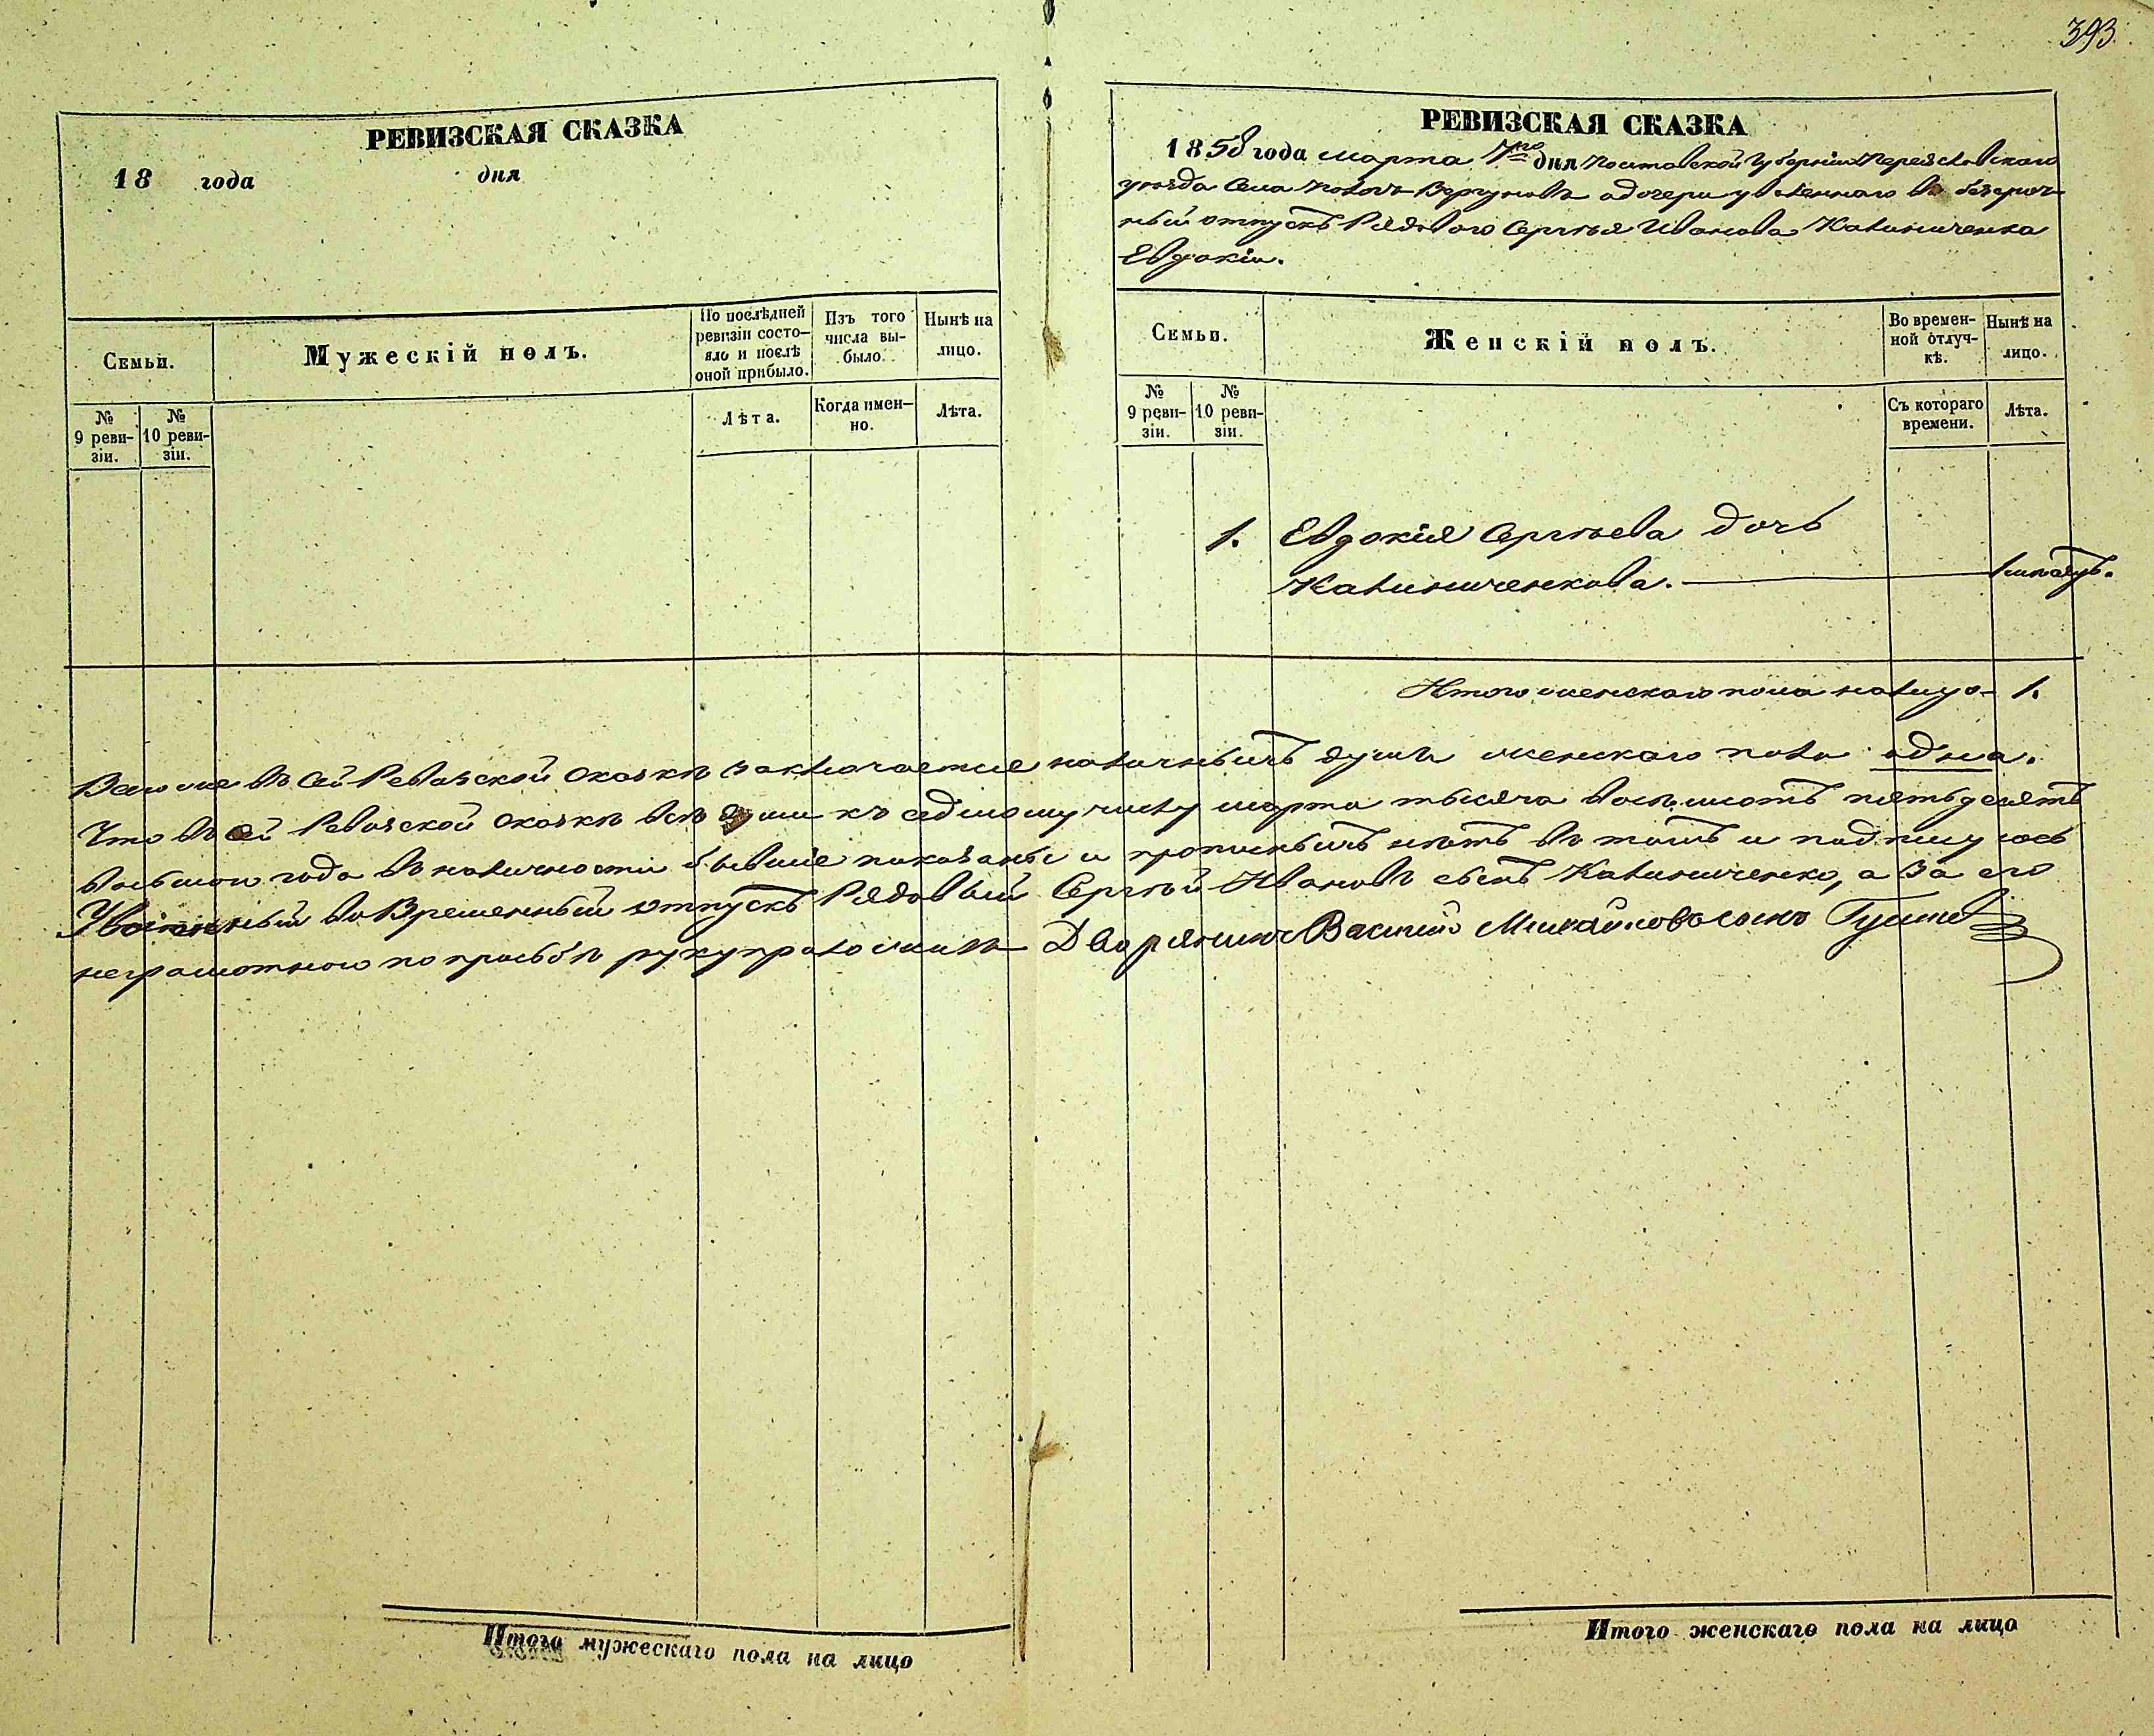 393.
РЕВИЗСКАЯ СКАЗКА
18 года дня
Семьи.
Мужескій полъ.
По послѣдней ревизіи состояло и послѣ оной прибыло.
Изъ того числа выбыло.
Нынѣ на лицо.
№ 9 ревизіи.
№ 10 ревизіи.
Лѣта.
Когда именно.
Лѣта.
РЕВИЗСКАЯ СКАЗКА
1858 года марта 7го дня Полтавской Губерніи Переяславскаго
уѣзда Села Вергуновъ о дочери уволеннаго въ безсроч-
ный отпускъ Рядоваго Сергѣя Иванова Калиниченка
Евдокіи.
Семьи.
Женскій полъ.
Во временной отлучкѣ.
Нынѣ на лицо.
№ 9 ревизіи.
№ 10 ревизіи.
Съ котораго времени.
Лѣта.
1. Евдокія Сергѣева дочь
Калиниченкова.
Итого женскаго пола налицо 1.
Всего же въ сей Ревизской сказкѣ заключается наличныхъ душъ женскаго пола одна.
Что въ сей Ревизской сказкѣ всѣ души къ седмому числу марта тысяча восемьсотъ пятьдесятъ
восьмого года въ наличности бывшіе показаны и прописныхъ нѣтъ въ томъ и подпишуюсь
Уволенный во Временный отпускъ Рядовый Сергѣй Ивановъ сынъ Калиниченко, а за его
неграмотного по просьбѣ руку приложилъ Дворянинъ Василий Михайловъ сынъ
Итого мужескаго пола на лицо
Итого женскаго пола на лицо